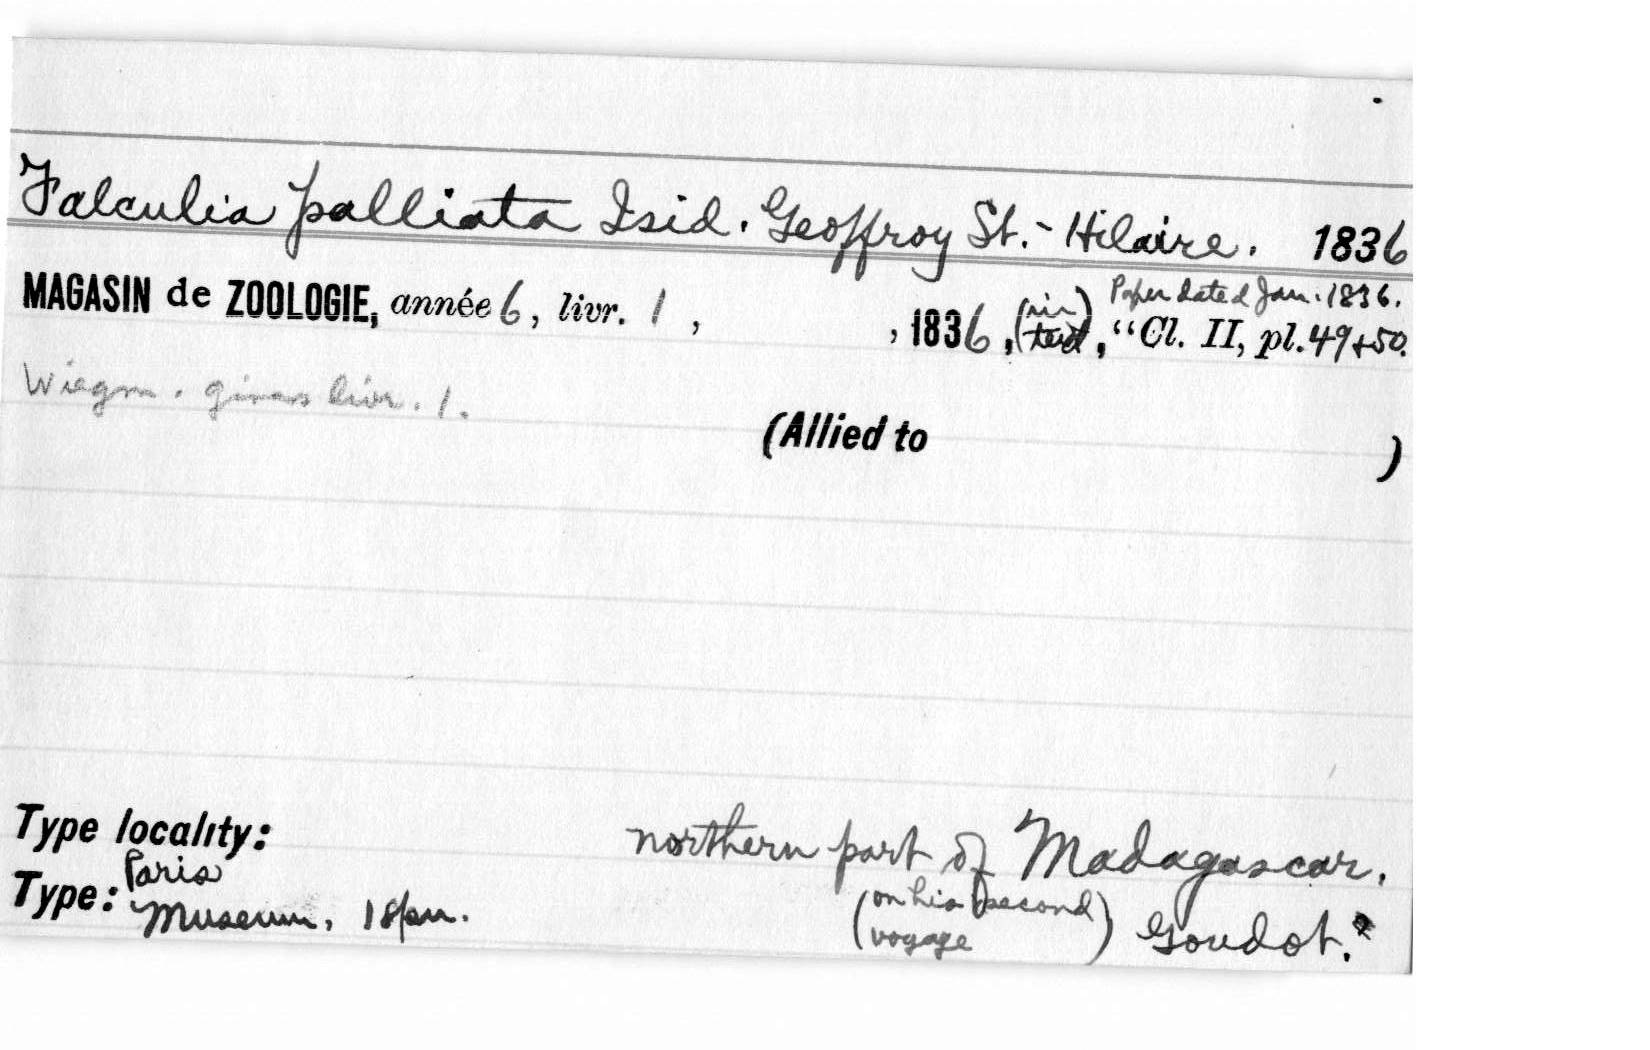 Falculia palliata Isid. Geoffroy St.-Hilaire. 1836
Paper dated Jan. 1836.
MAGASIN de ZOOLOGIE, année 6, livr. 1, , 1836, (in) text, "Cl. II, pl. 49+50.
Wiegm. gives livr. 1.
(Allied to )
Type locality: northern part of Madagascar.
Type: Paris Museum, 1 spm. (on his second voyage) Goudot.